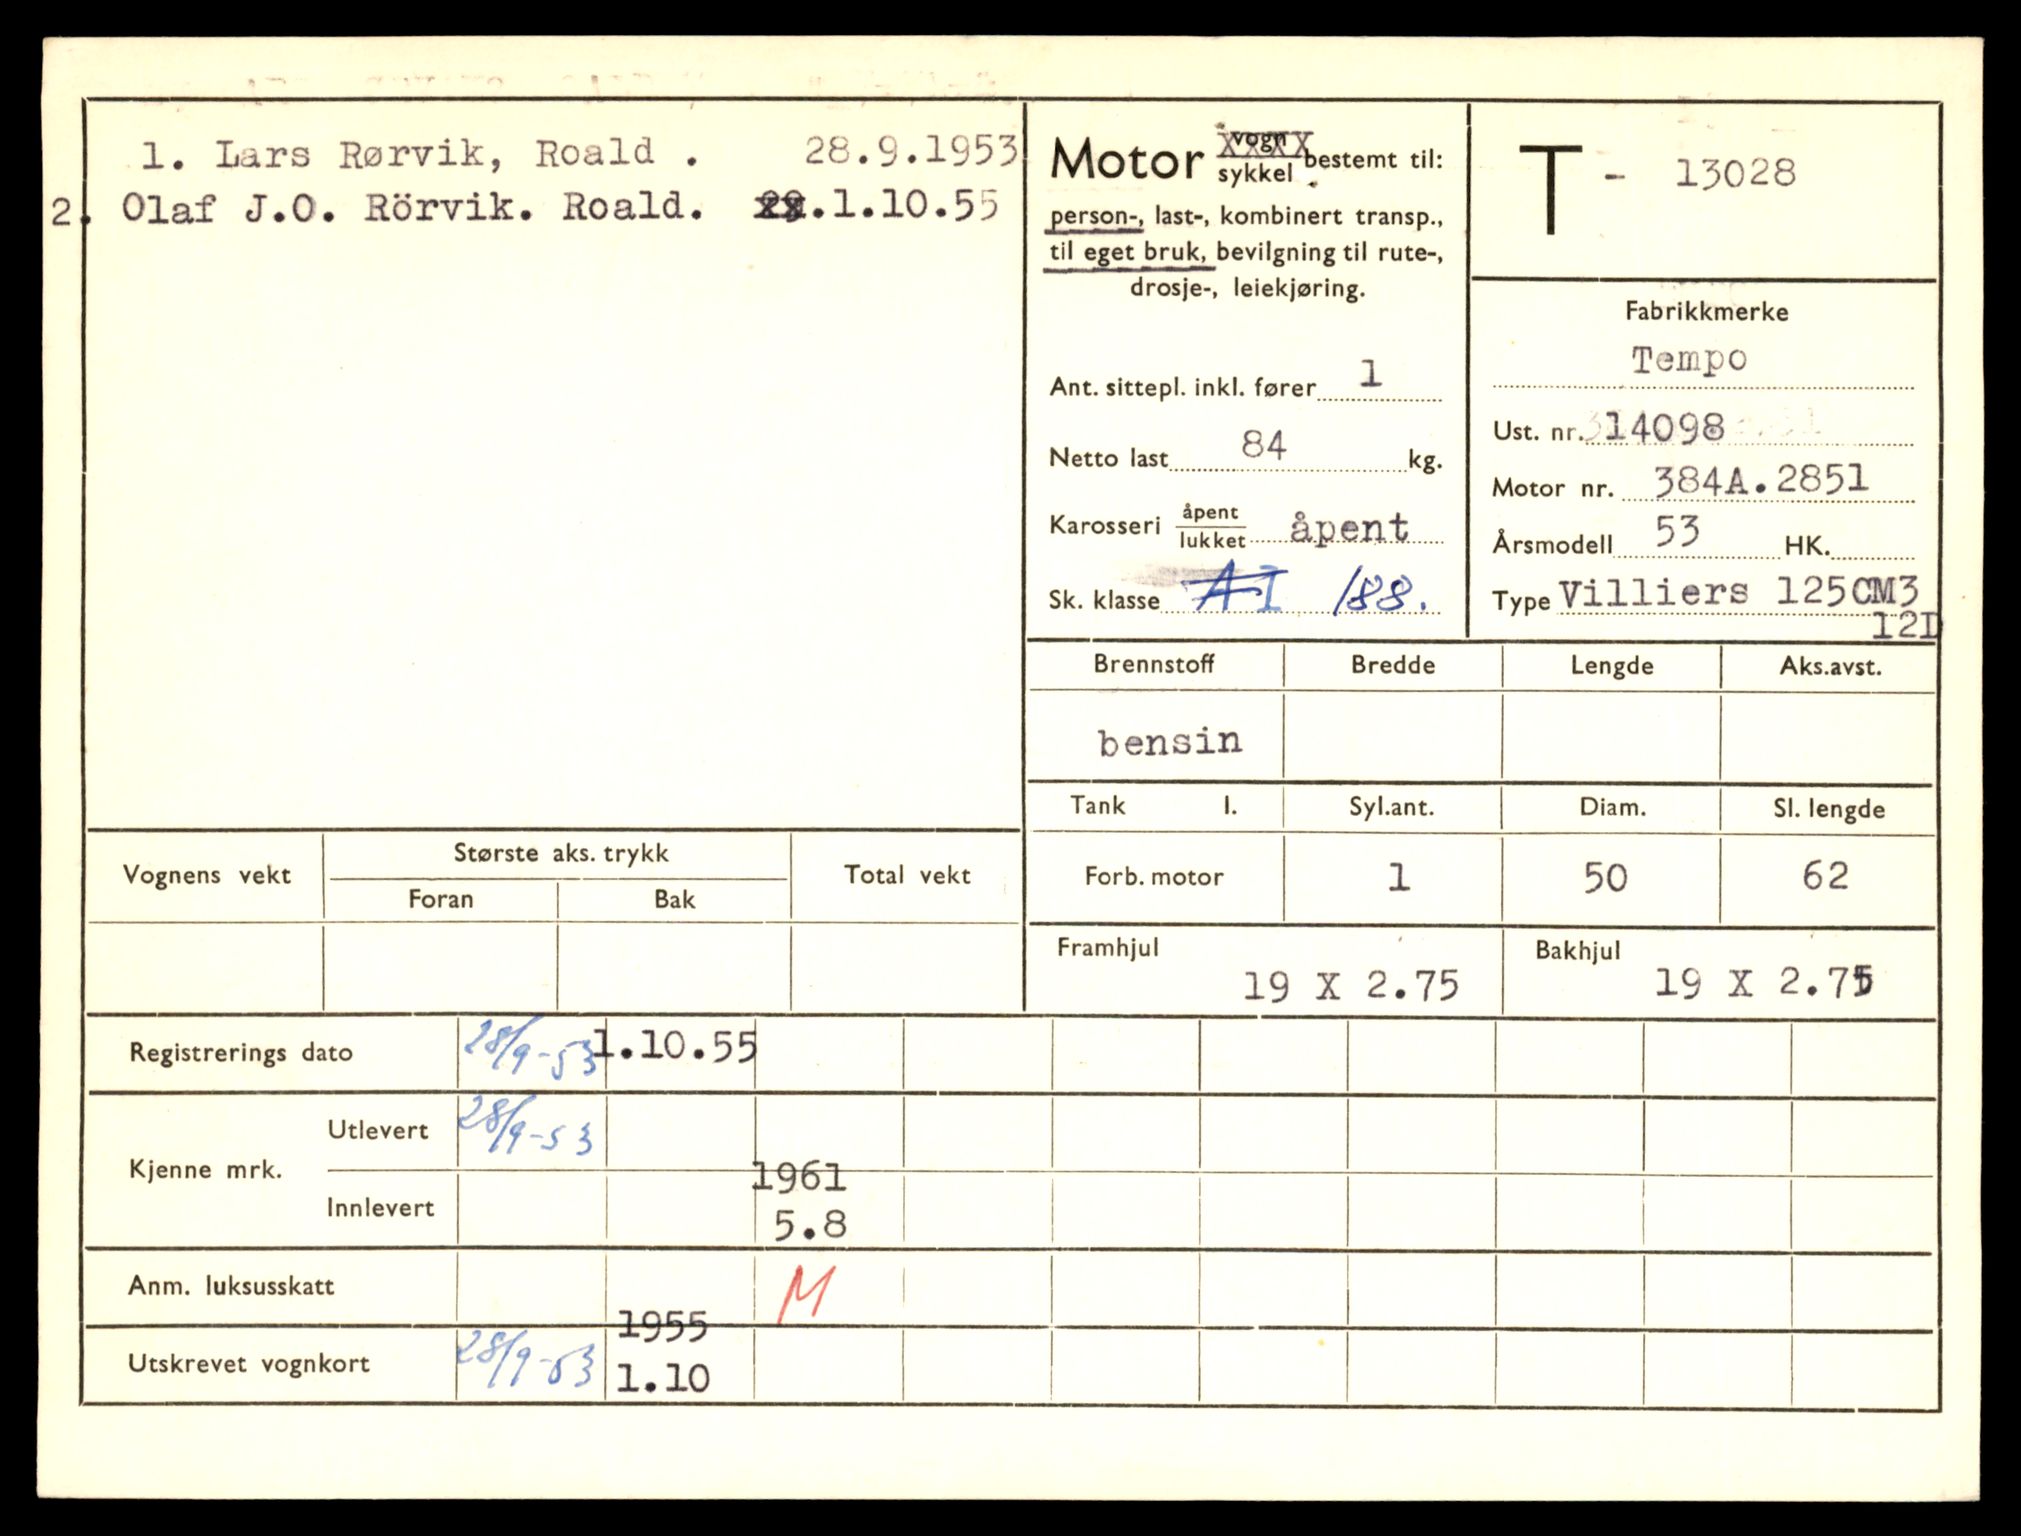 1. Lars Rørvik, Roald . 28.9.1953
2. Olaf J.O. Rörvik. Roald. xx.1.10.55
Motor vogn sykkel bestemt til:
person-, last-, kombinert transp.,
til eget bruk, bevilgning til rute-,
drosje-, leiekjøring.
Ant. sittepl. inkl. fører 1
Netto last 84 kg.
Karosseri åpent lukket åpent
Sk. klasse AI 188.
T - 13028
Fabrikkmerke
Tempo
Ust. nr. 14098
Motor nr. 384A.2851
Årsmodell 53 HK.
Type Villiers 125CM3
12D
Brennstoff Bredde Lengde Aks.avst.
bensin
Tank l. Syl.ant. Diam. Sl. lengde
Forb. motor 1 50 62
Framhjul 19 X 2.75
Bakhjul 19 X 2.75
Vognens vekt Største aks. trykk Total vekt
Foran Bak
Registrerings dato 28/9-53 1.10.55
Kjenne mrk. Utlevert 28/9-53
Innlevert 1961
5.8
Anm. luksusskatt M
Utskrevet vognkort 28/9-53 1955
1.10